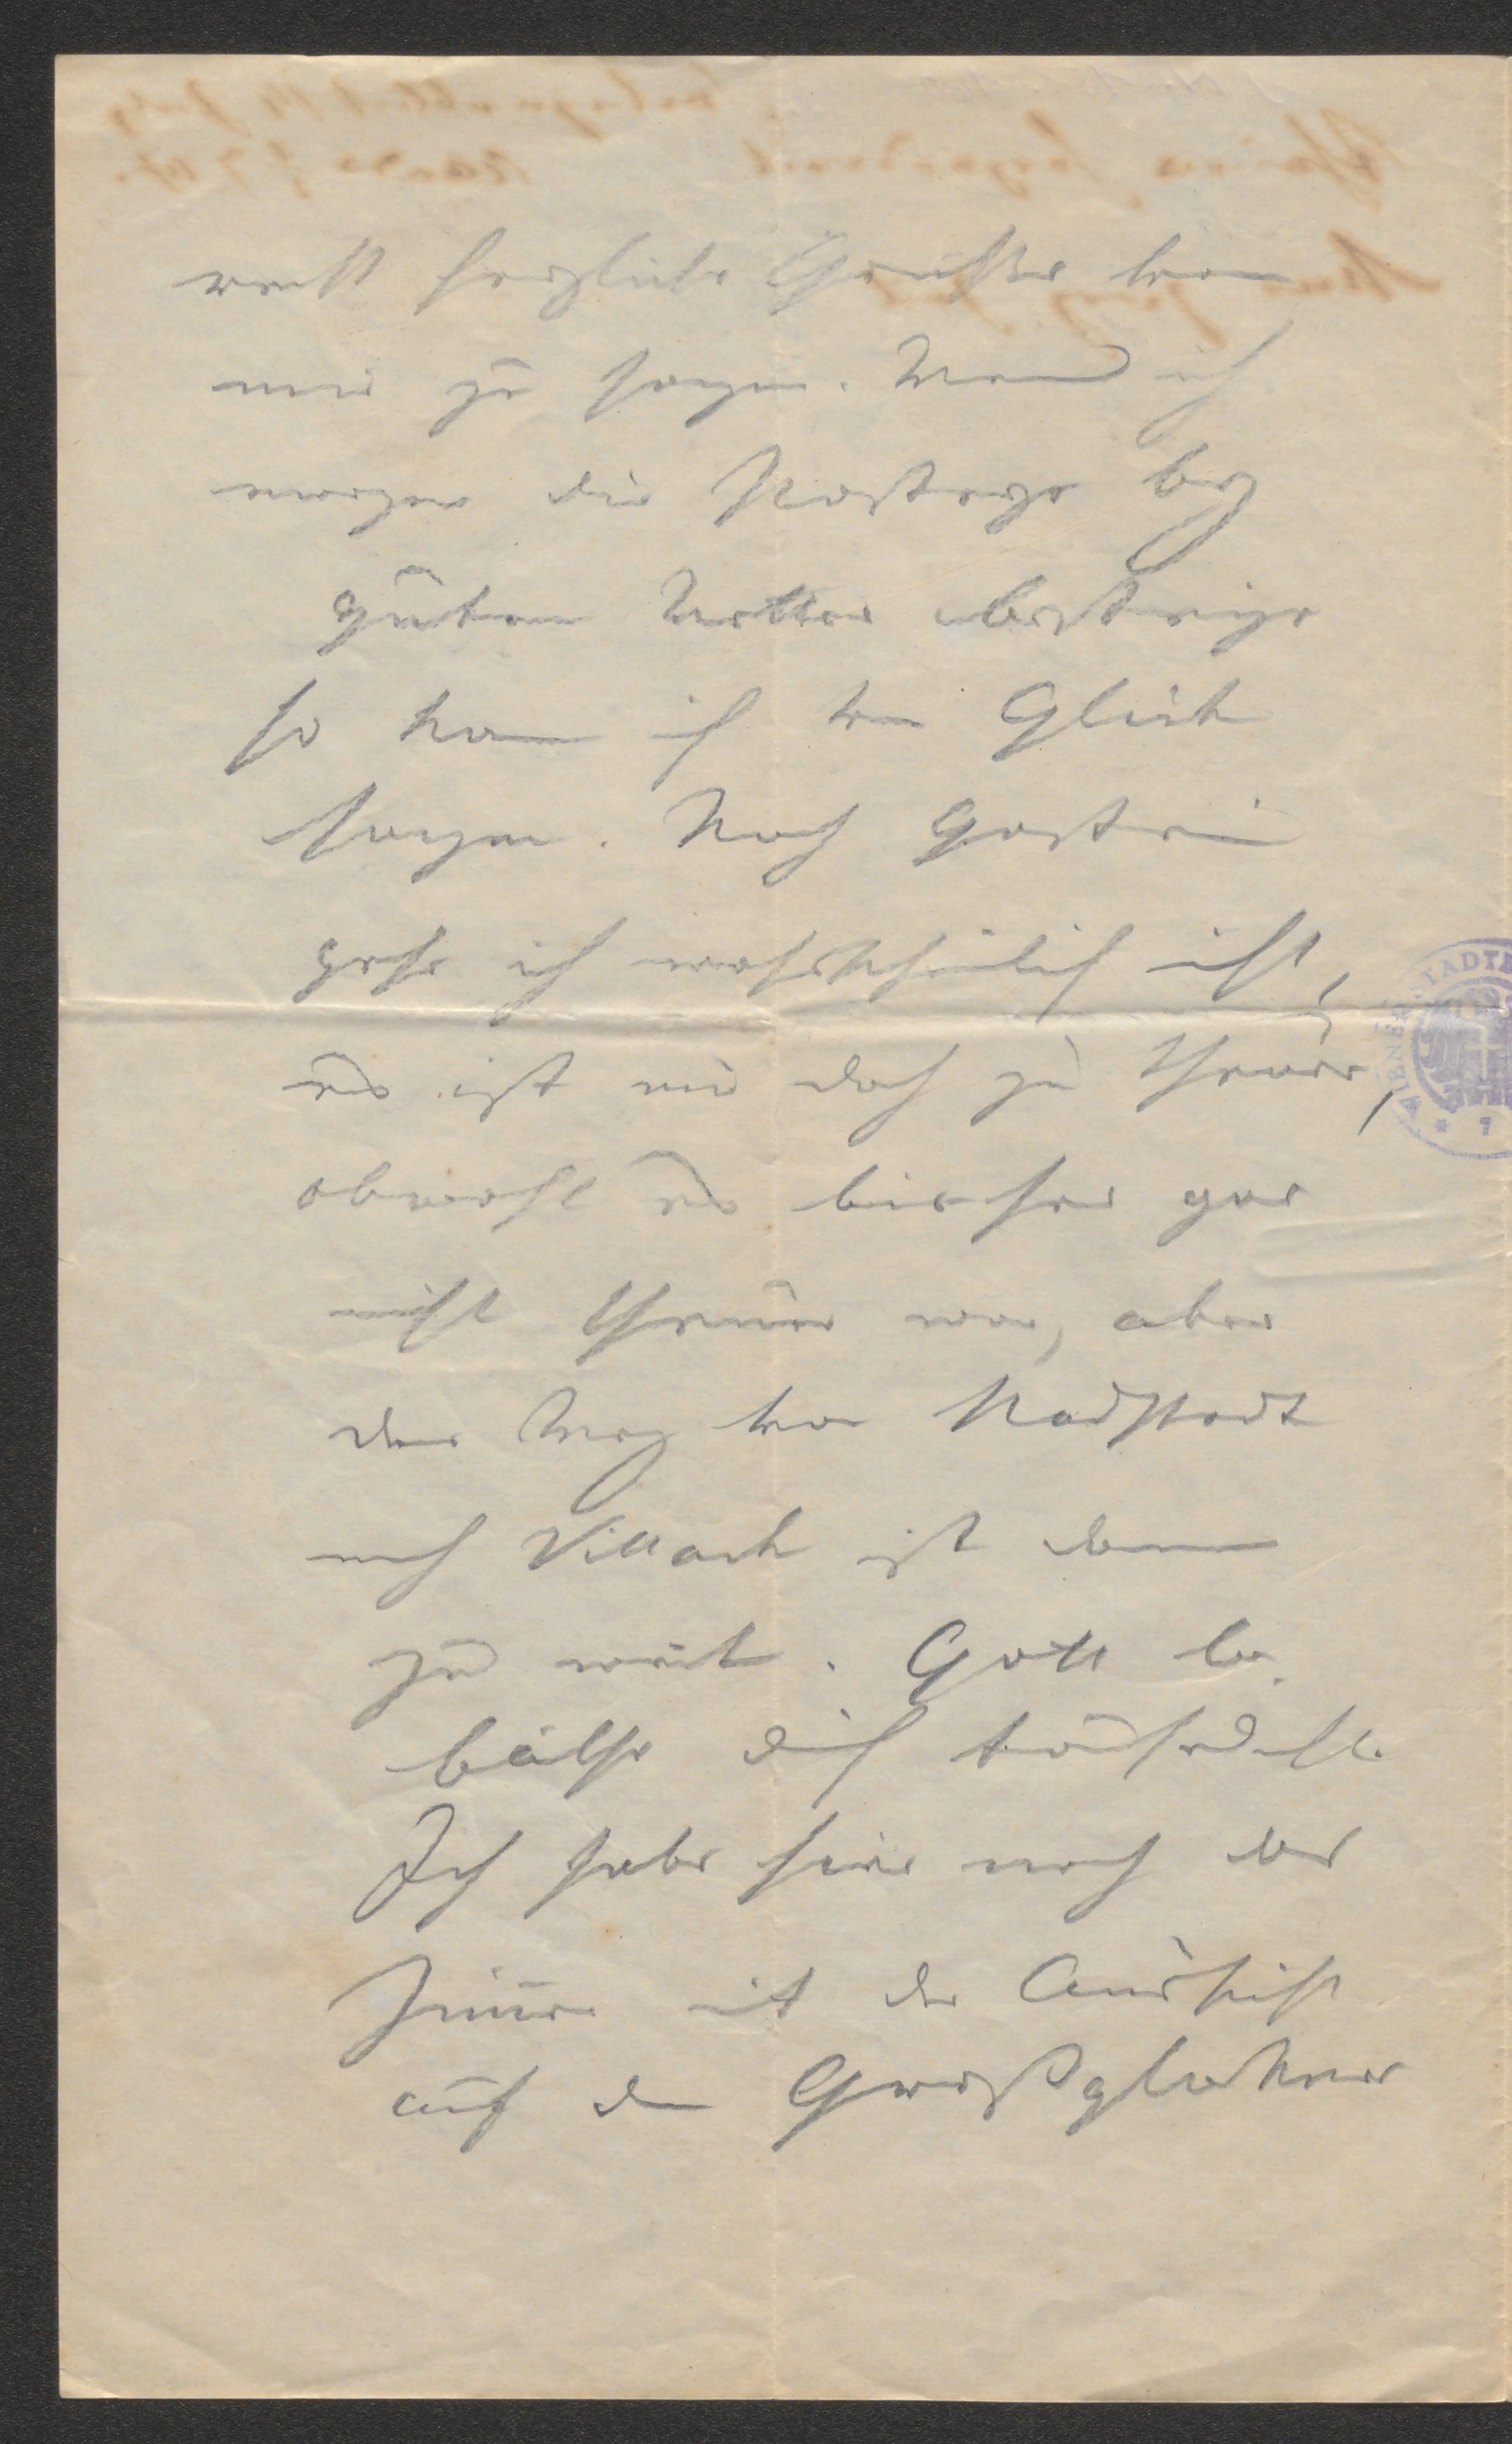 recht herzliche Grüße von
mir zu sagen. Wenn ich
morgen die Pasterze bey
gutem Wetter besteige
so kann ich von Glück
sagen. Nach Gastein
gehe ich wahrscheinlich nicht,
es ist mir doch zu theuer,
obwohl es bisher gar
nicht theuer war, aber
der Weg von Radstadt
nach Villach ist dann
zu weit. Gott be
hüthe dich
Ich habe hier noch das
Zimmer mit der Aussicht
auf den Großglockner